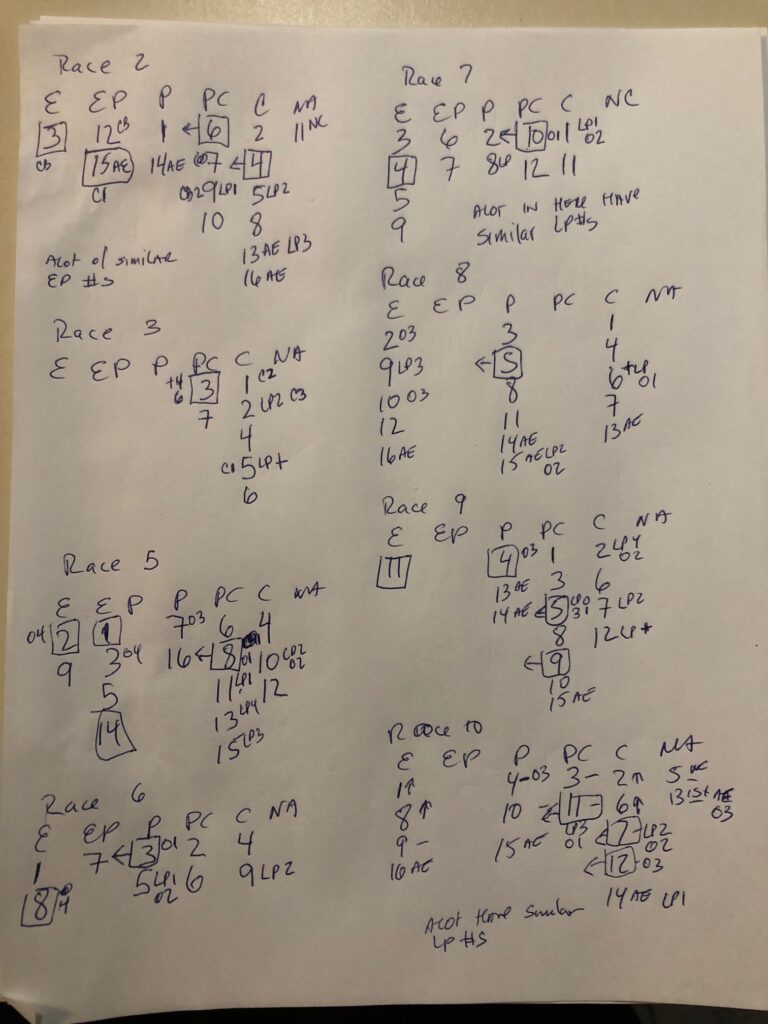 Race 2
E EP P PC C NA
3 12 C3 1 ← 6 2 11 NC
C3 15 AE 14 AE 7 ← 4
C1 9 LP1 5 LP2
10 8
Alot of similar 13 AE LP3
EP #s 16 AE
Race 3
E EP P PC C NA
+4 3 1 C2
6 7 2 LP2 C3
4
C1 5 LP+
6
Race 5
E EP P PC C NA
04 2 1 7 03 6 4
9 3 04 16 ← 8 01 10 LP2 02
5 11 LP1 12
14 13 LP4
15 LP3
Race 6
E EP P PC C NA
1 7 ← 3 01 2 4
8 04 5 LP1 6 9 LP2
02
Race 7
E EP P PC C NC
3 6 2 ← 10 01 1 LP1 02
4 7 8 LP 12 11
5
9
Alot in here have
similar LP#s
Race 8
E EP P PC C NA
2 03 3 1
9 LP3 ← 5 4
10 03 8 6 +LP 01
12 11 7
16 AE 14 AE 13 AE
15 AE LP2
02
Race 9
E EP P PC C NA
11 4 03 1 2 LP4 02
13 AE 3 6
14 AE ← 5 7 LP2
8 12 LP+
← 9
10
15 AE
Race 10
E EP P PC C NA
1↑ 4-03 3- 2↑ 5-
8↑ 10- ← 11- 6↑ 13 AE
9- 15 AE LP3 ← 7- LP2 03
16 AE 01 02
← 12-03
14 AE LP1
Alot have similar
LP #s